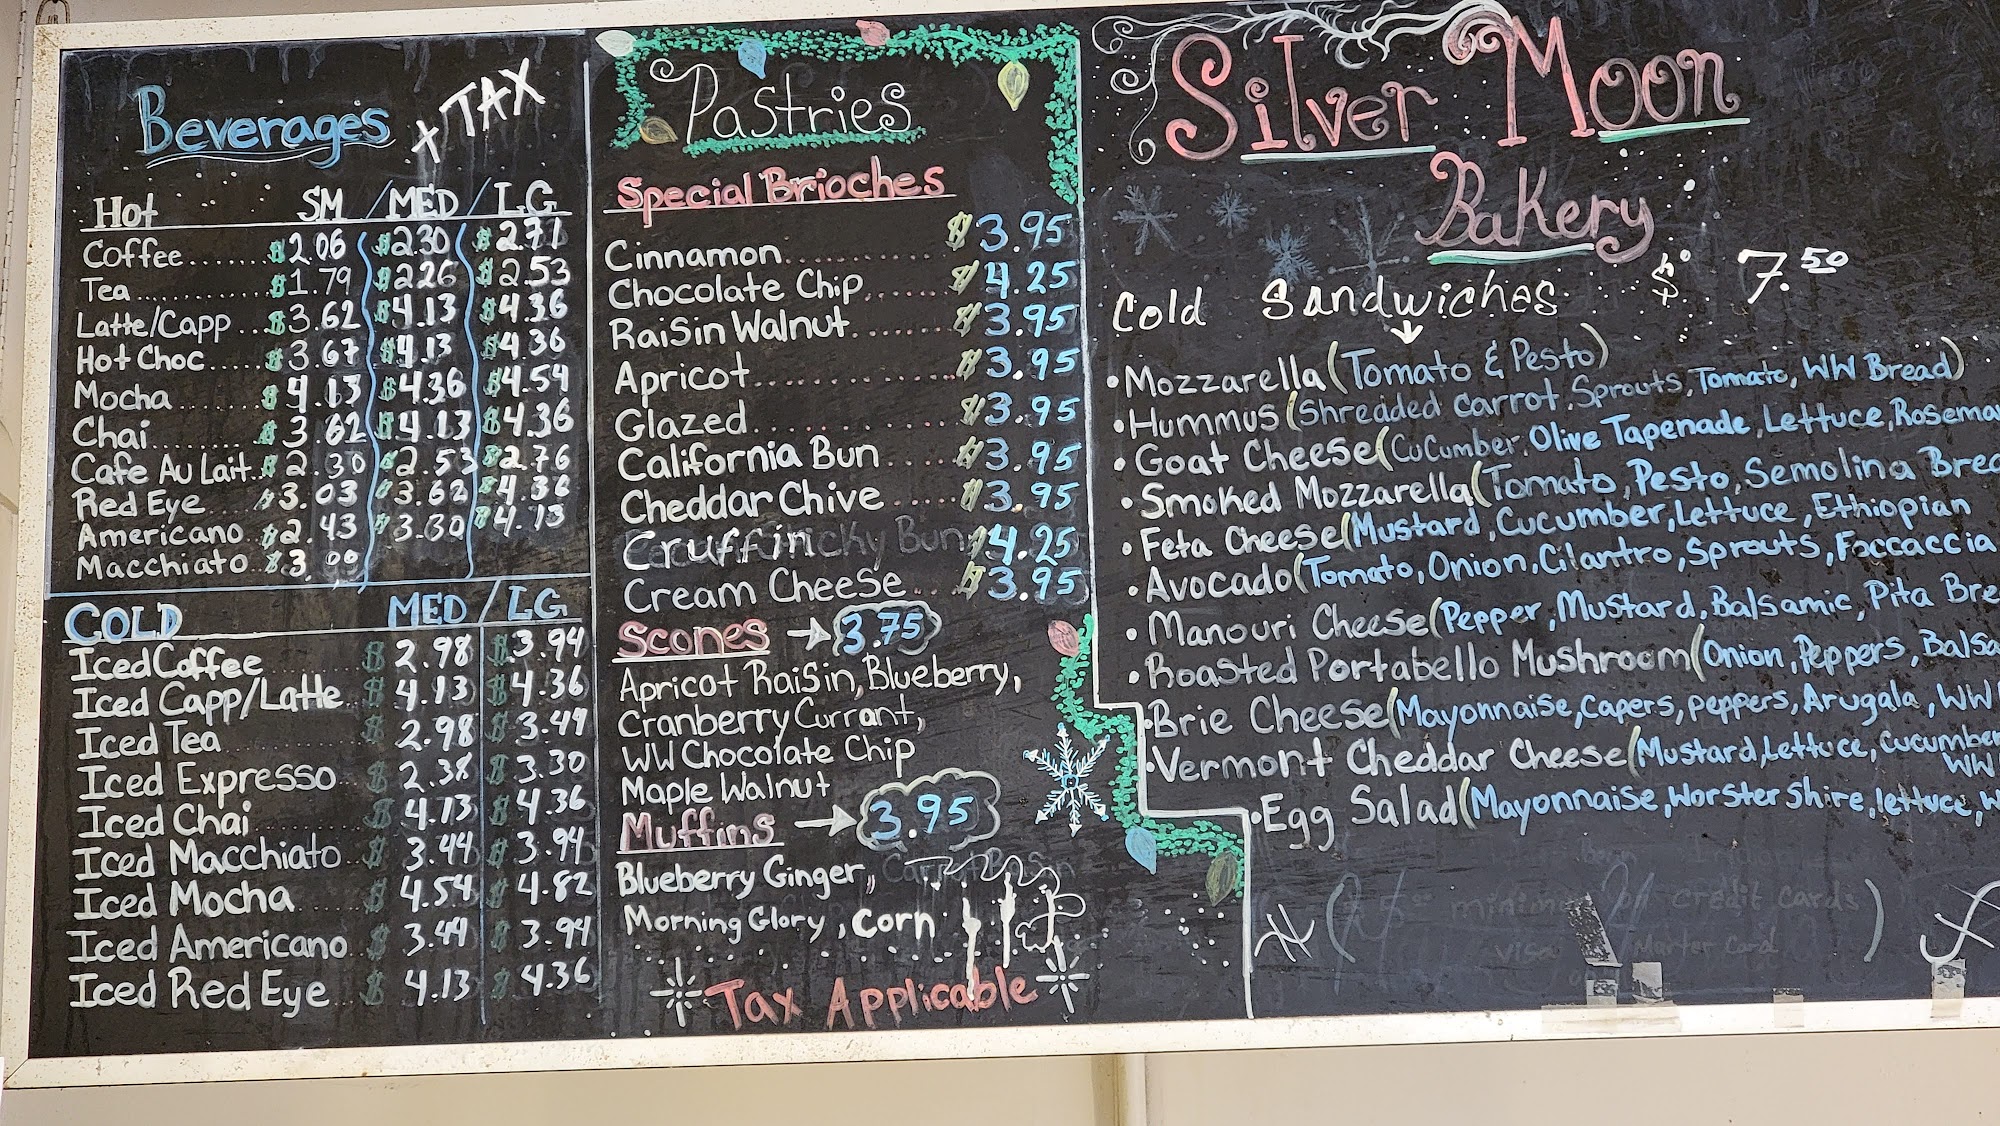 Beverages + TAX
Hot SM / MED / LG
Coffee....... $2.06 $2.30 $2.71
Tea............ $1.79 $2.26 $2.53
Latte/Capp... $3.62 $4.13 $4.36
Hot Choc..... $3.67 $4.13 $4.36
Mocha......... $4.13 $4.36 $4.54
Chai............ $3.62 $4.13 $4.36
Cafe Au Lait.. $2.30 $2.53 $2.76
Red Eye...... $3.03 $3.62 $4.36
Americano $2.43 $3.30 $4.13
Macchiato... $3.00
COLD MED / LG
Iced Coffee $2.98 $3.94
Iced Capp/Latte $4.13 $4.36
Iced Tea $2.98 $3.49
Iced Expresso $2.38 $3.30
Iced Chai $4.13 $4.36
Iced Macchiato $3.44 $3.94
Iced Mocha $4.54 $4.82
Iced Americano $3.44 $3.94
Iced Red Eye $4.13 $4.36
Pastries
Special Brioches
Cinnamon............ $3.95
Chocolate Chip....... $4.25
Raisin Walnut........ $3.95
Apricot................ $3.95
Glazed................ $3.95
California Bun..... $3.95
Cheddar Chive..... $3.95
Cruffin $4.25
Cream Cheese... $3.95
Scones → 3.75
Apricot Raisin, Blueberry,
Cranberry Currant,
WW Chocolate Chip
Maple Walnut
Muffins → 3.95
Blueberry Ginger,
Morning Glory, Corn
Tax Applicable
Silver Moon
Bakery
Cold Sandwiches $ 7.50
• Mozzarella (Tomato & Pesto)
• Hummus (Shreaded carrot, Sprouts, Tomato, WW Bread)
• Goat Cheese (Cucumber, Olive Tapenade, Lettuce,
• Smoked Mozzarella (Tomato, Pesto, Semolina
• Feta Cheese (Mustard, Cucumber, Lettuce, Ethiopian
• Avocado (Tomato, Onion, Cilantro, Sprouts, Foccaccia
• Manouri Cheese (Pepper, Mustard, Balsamic, Pita
• Roasted Portabello Mushroom (Onion, Peppers,
• Brie Cheese (Mayonnaise, capers, peppers, Arugala, WW
• Vermont Cheddar Cheese (Mustard, Lettuce, cucumber
WW
• Egg Salad (Mayonnaise, worster shire, lettuce,
minimum on credit cards)
visa Master card